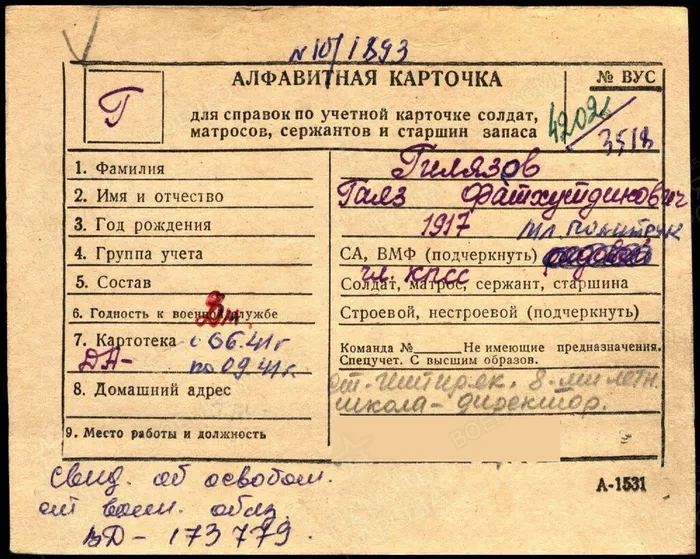 N 10/1893
Г
АЛФАВИТНАЯ КАРТОЧКА
№ ВУС
для справок по учетной карточке солдат,
матросов, сержантов и старшин запаса
4202
3518
1. Фамилия
Гилязов
2. Имя и отчество
Гаяз Фатхутдинович
3. Год рождения
1917 мл. политрук
4. Группа учета
СА, ВМФ (подчеркнуть)
5. Состав
чл. КПСС
Солдат, матрос, сержант, старшина
6. Годность к военной службе
Строевой, нестроевой (подчеркнуть)
7. Картотека с 06.41 г
ДА- по 09.41 г.
Команда № Не имеющие предназначения.
Спецучет. С высшим образов.
8. Домашний адрес
8-ми летн.
школа - директор.
9. Место работы и должность
Свид. об освобож.
от воен. обяз.
ВД - 173779.
А-1531